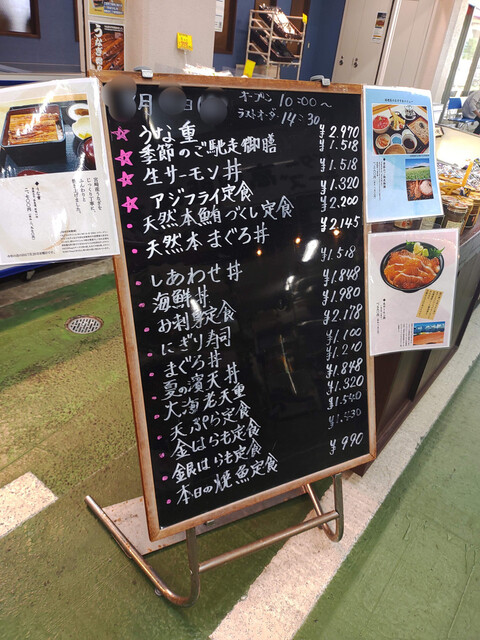 月
オープン 10:00〜
ラストオーダー 14:30
うな重 ¥2.970
季節のご馳走御膳 ¥1.518
生サーモン丼 ¥1.518
アジフライ定食 ¥1.320
天然本鮪づくし定食 ¥2.200
天然本まぐろ丼 ¥2.145
しあわせ丼 ¥1.518
海鮮丼 ¥1.848
お刺身定食 ¥1.980
にぎり寿司 ¥2.178
まぐろ丼 ¥1.100
夏の濱天丼 ¥1.210
大海老天重 ¥1.848
天ぷら定食 ¥1.320
金はらも定食 ¥1.540
銀はらも定食 ¥1.430
本日の焼魚定食 ¥990
宮崎産うなぎを
じっくり丁寧に
ふんわりと
焼き上げました。